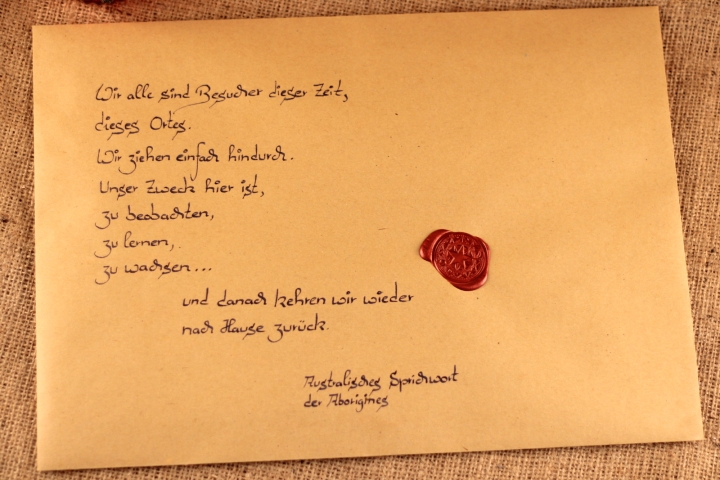 Wir alle sind Besucher dieser Zeit,
dieses Ortes.
Wir ziehen einfach hindurch.
Unser Zweck hier ist,
zu beobachten,
zu lernen,.
zu wachsen...
und danach kehren wir wieder
nach Hause zurück.
Australisches Sprichwort
der Aborigines